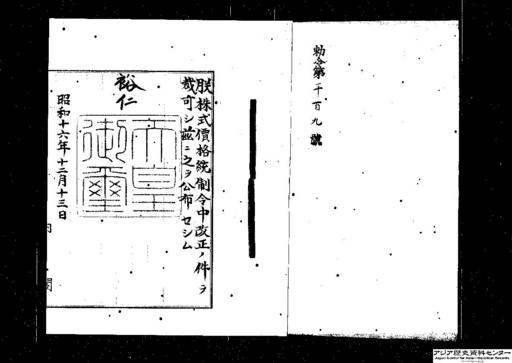 勅令第千百九號
朕株式價格統制令中改正ノ件ヲ
裁可シ茲ニ之ヲ公布セシム
裕仁
天皇御璽
昭和十六年十二月十三日
内閣
アジア歴史資料センター
Japan Center for Asian Historical Records